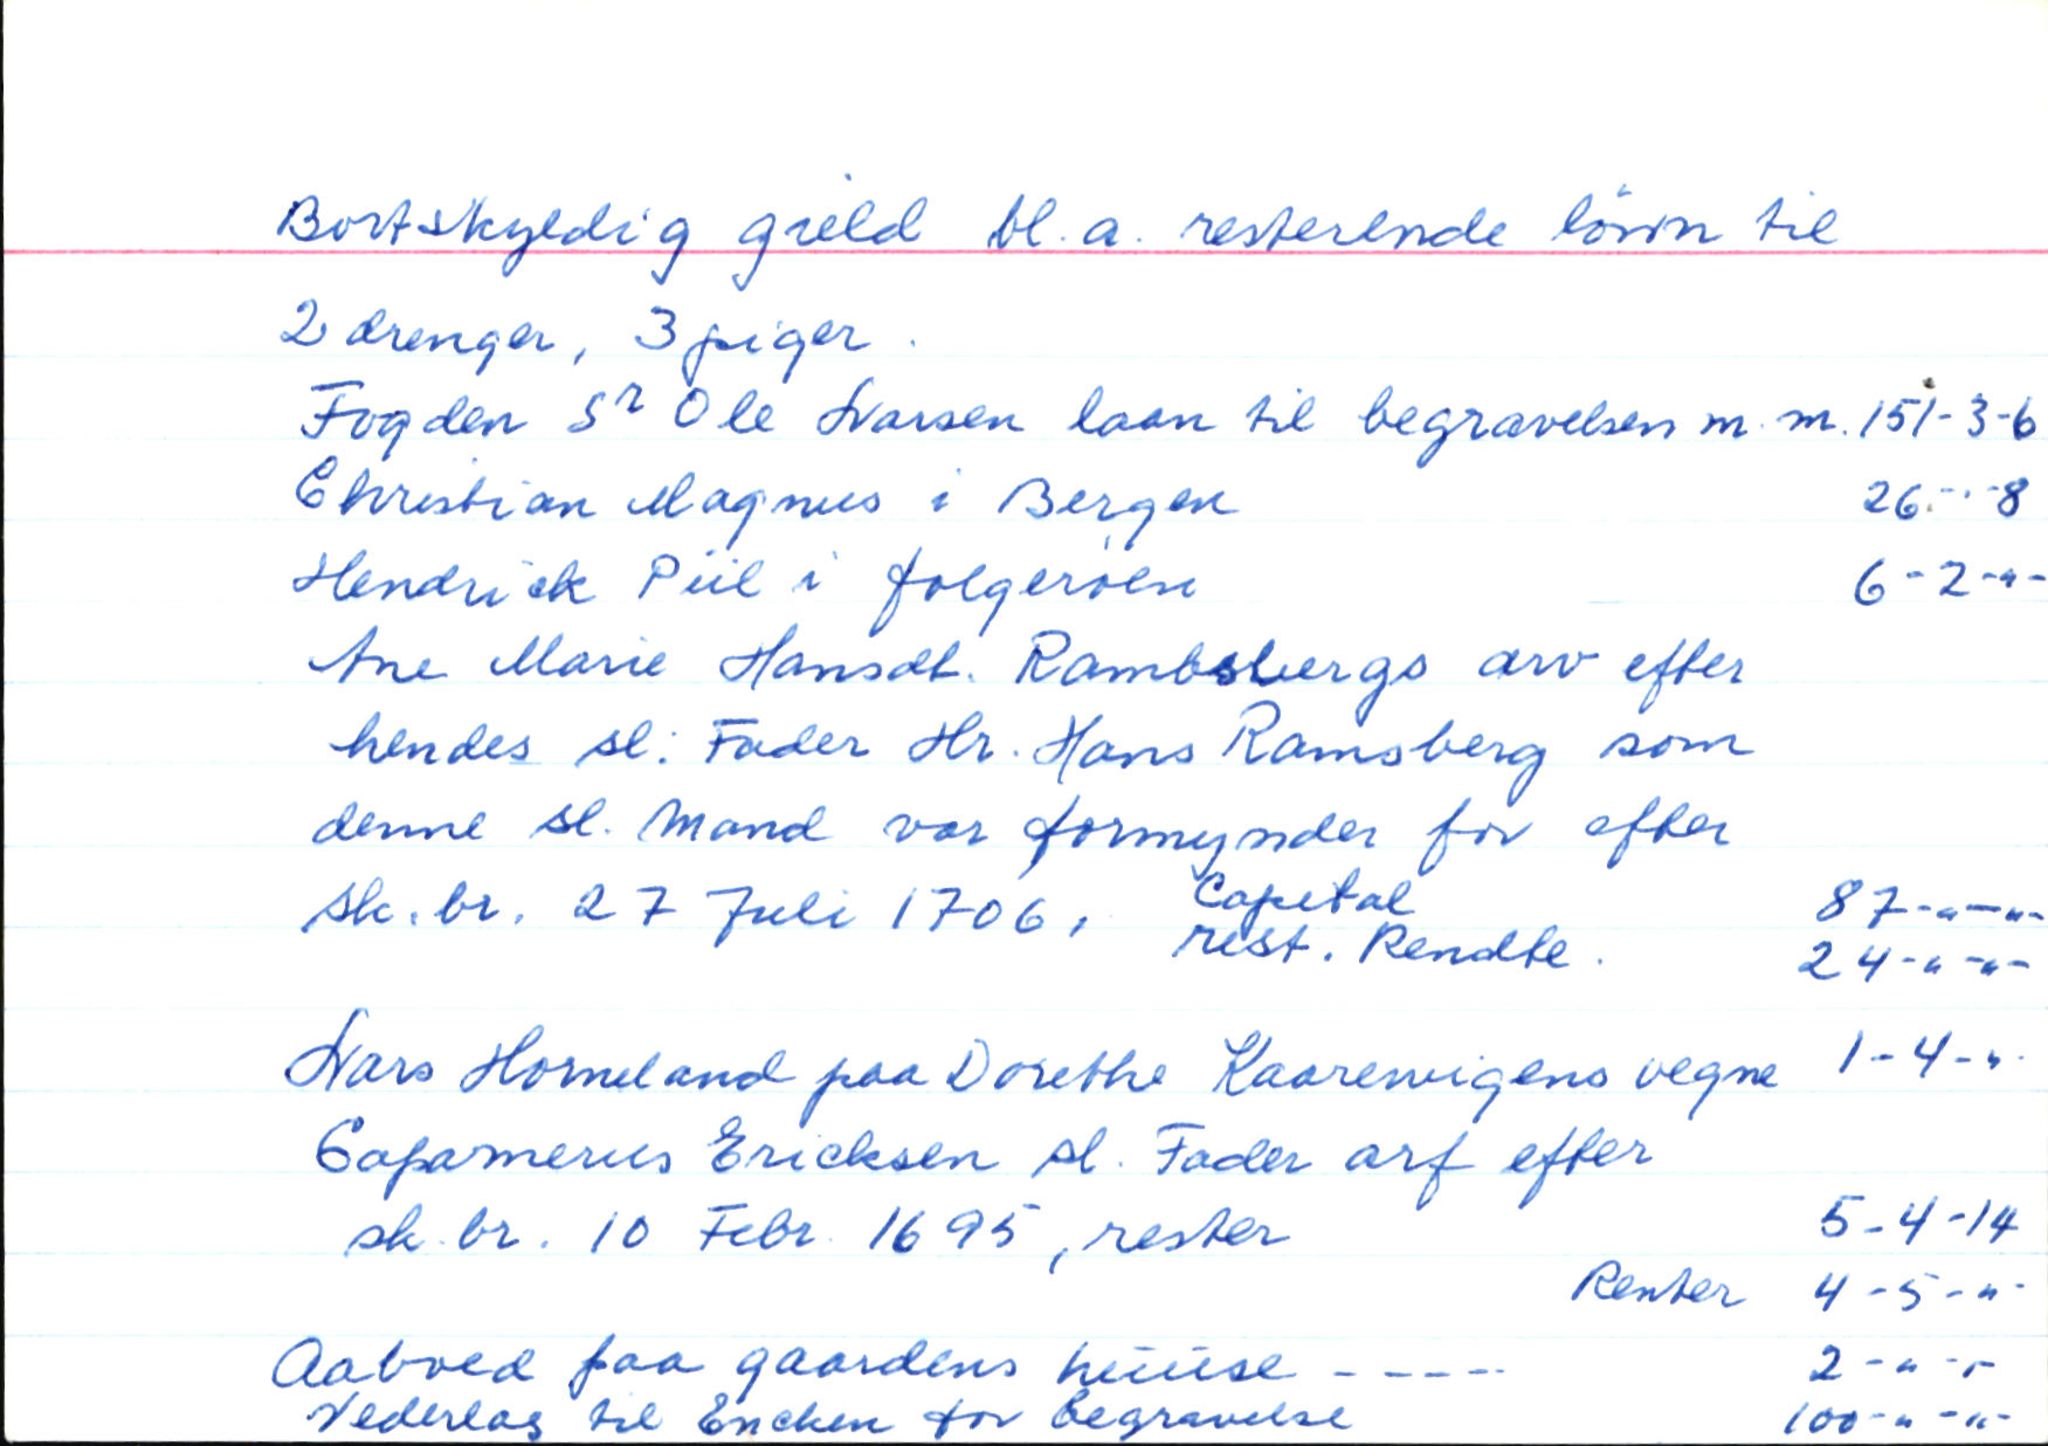 Bortskyldig gield bl. a. resterende lönn til
2 drenger, 3 piger.
Fogden Sr Ole Larsen laan til begravelsen m. m. 151-3-6
Christian Magnus i Bergen 26-"-8
Hendrick Piil i folgeröen 6-2-"-
Ane Marie Hansdt. Rambsbergs arv efter
hendes sl: Fader Hr. Hans Ramsberg som
denne sl. Mand var formynder for efter
sk. br. 27 Juli 1706, Capital 87-"-"-
rest. Rendte. 24-"-"-
Lars Horneland paa Dorethe Kaarevigens vegne 1-4-"-
Ericksen sl. Fader arf efter
sk. br. 10 Febr. 1695, rester 5-4-14
Renter 4-5-"-
Aaboed paa gaardens hüüse ----- 2-"-"-
Vederlag til Encken for begravelse 100-"-"-